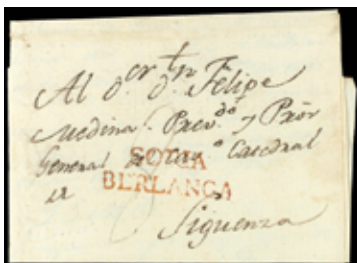 Al S.or D.n Felipe
Medina Prev.do y Prior
General de Catedral
SORIA
BERLANGA
Siguenza